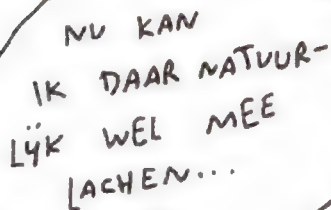 NU KAN
IK DAAR NATUUR-
LIJK WEL MEE
LACHEN...